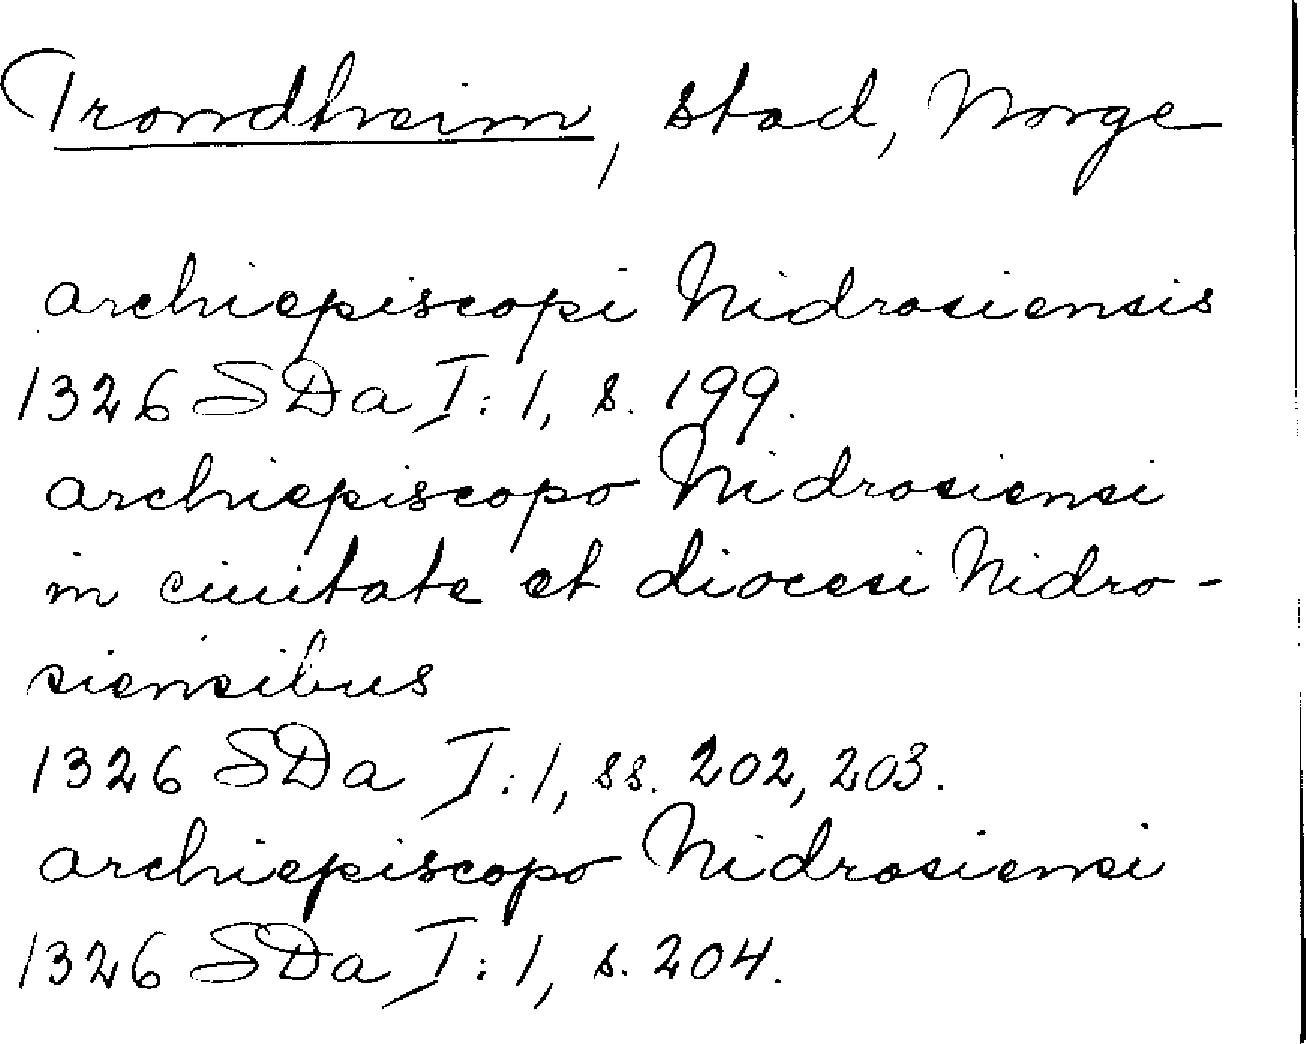 Trondheim, stad, Norge
archiepiscopi Nidrosiensis
1326 SDa I:1, s. 199.
archiepiscopo Nidrosiensi
in ciuitate et diocesi Nidro-
siensibus
1326 SDa I:1, ss. 202, 203.
archiepiscopo Nidrosiensi
1326 SDa I:1, s. 204.